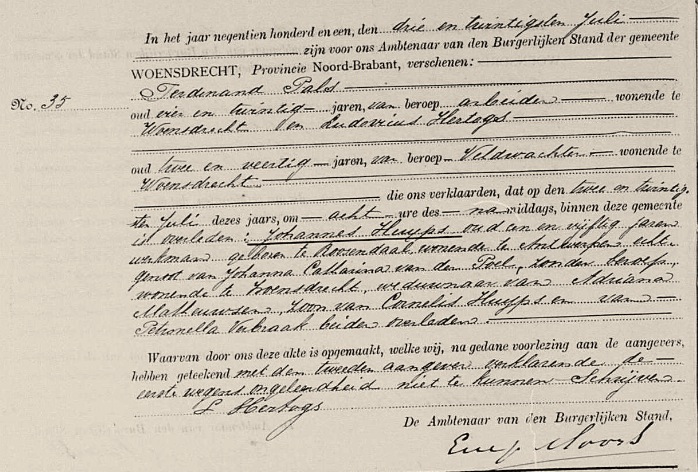 In het jaar negentien honderd en een, den drie en twintigsten Juli
zijn voor ons Ambtenaar van den Burgerlijken Stand der gemeente
WOENSDRECHT, Provincie Noord-Brabant, verschenen:
No. 35
Ferdinand Pals
oud vier en twintig jaren, van beroep arbeider wonende te
Woensdrecht en Ludovicus Hertogs
oud twee en veertig jaren, van beroep Veldwachter wonende te
Woensdrecht
die ons verklaarden, dat op den twee en twintig
sten Juli dezes jaars, om acht ure des na middags, binnen deze gemeente
is overleden: Johannes Huyps oud een en vijftig jaren
werkman geboren te Roosendaal, wonende te Antwerpen, echt-
genoot van Johanna Catharina van den Poel, zonder beroep,
wonende te Woensdrecht, weduwnaar van Adriana
Matheeuwsen, zoon van Cornelis Huyps en van
Petronella Verbraak beiden overleden.
Waarvan door ons deze akte is opgemaakt, welke wij, na gedane voorlezing aan de aangevers,
hebben geteekend met den tweeden aangever verklarende de
eerste wegens ongeleerdheid niet te kunnen schrijven.
L Hertogs
De Ambtenaar van den Burgerlijken Stand,